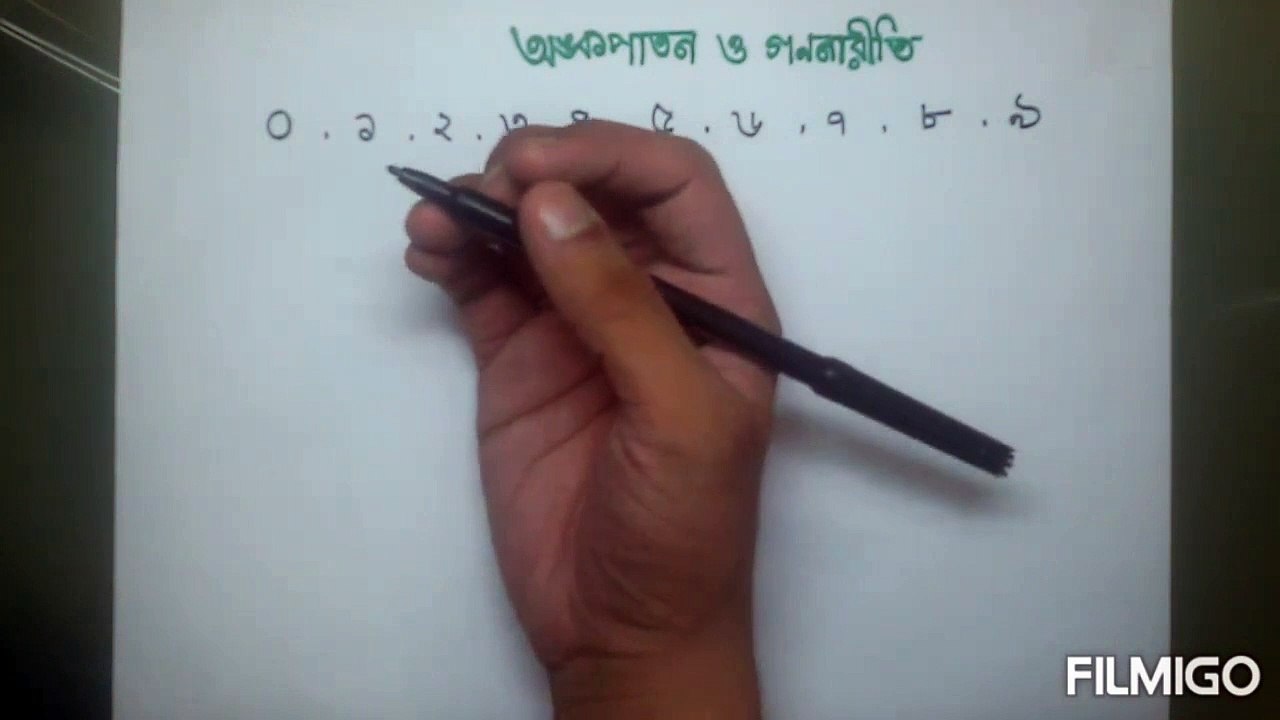 অঙ্কপাতন ও গণনারীতি
০ . ১ . ২ . ৩ ৪ ৫ . ৬ , ৭ . ৮ . ৯
FILMIGO